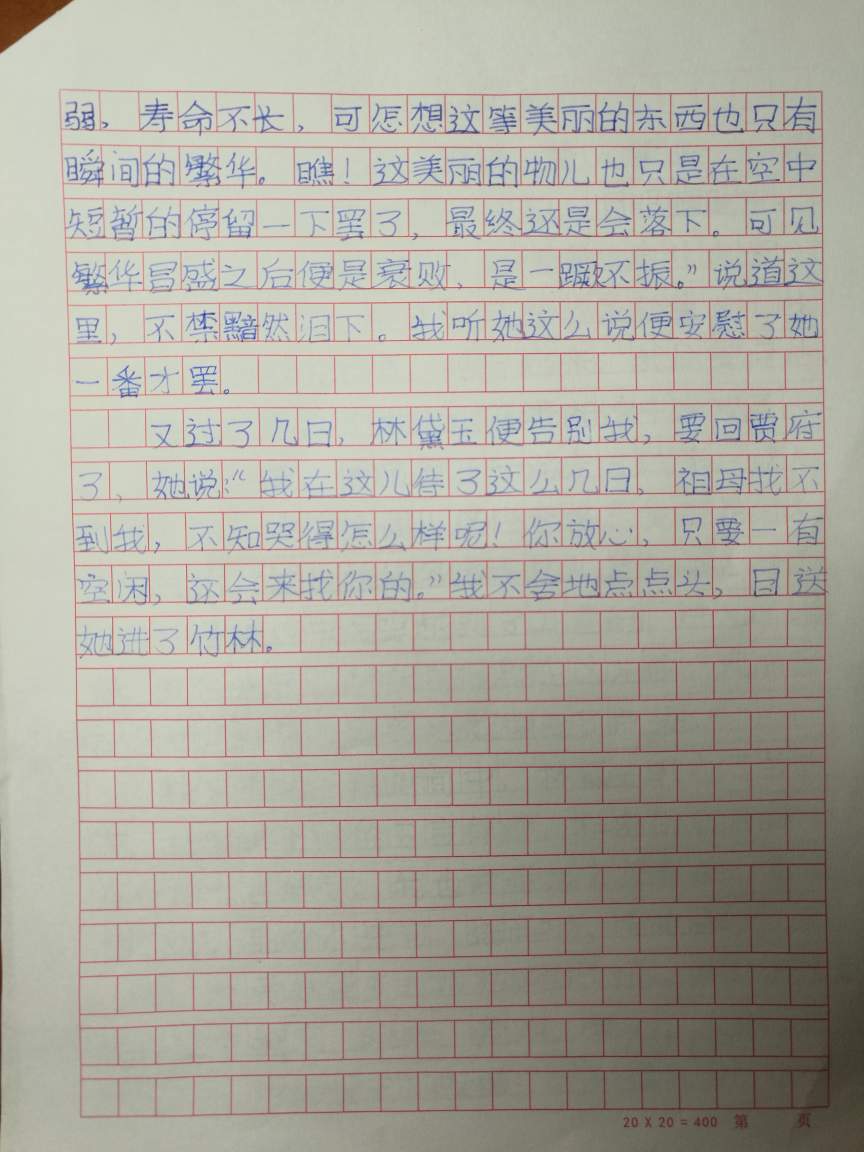 弱，寿命不长，可怎想这等美丽的东西也只有
瞬间的繁华。瞧！这美丽的物儿也只是在空中
短暂的停留一下罢了，最终还是会落下。可见
繁华昌盛之后便是衰败，是一蹶不振。”说道这
里，不禁黯然泪下。我听她这么说便安慰了她
一番才罢。
又过了几日，林黛玉便告别我，要回贾府
了，她说：“我在这儿待了这么几日，祖母找不
到我，不知哭得怎么样呢！你放心，只要一有
空闲，还会来找你的。”我不舍地点点头，目送
她进了竹林。
20 X 20 = 400 第 页